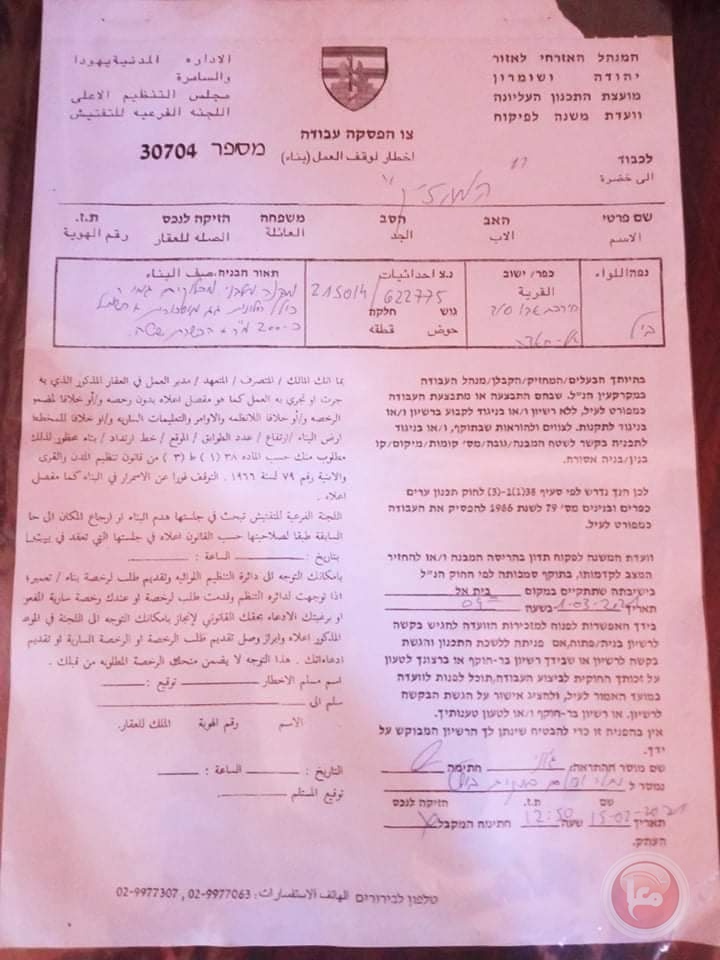 המנהל האזרחי לאזור
יהודה ושומרון
מועצת התכנון העליונה
וועדת משנה לפיקוח
الاداره المدنية يهودا
والسامرة
مجلس التنظيم الاعلى
اللجنه الفرعيه للتفتيش
צו הפסקה עבודה
اخطار لوقف العمل (بناء)
מספר 30704
לכבוד
الى حضرة
שם פרטי האב הסב משפחה הזיקה לנכס ת.ז.
الاسم الاب الجد العائلة الصله للعقار رقم الهوية
נפה اللواء כפר/ ישוב נ.צ احداثيات תאור הבניה: صيف البناء
القرية 622775 / 215014
גוש חלקה
حوض قطعه
בהיותך הבעלים/המחזיק/הקבלן/מנהל העבודה
במקרקעין הנ"ל. שבהם התבצעה או מתבצעת העבודה
כמפורט לעיל, ללא רשיון ו/או בניגוד לקבוע ברשיון ו/או
בניגוד לתקנות. לצווים ולהוראות שבתוקף, ו/או בניגוד
לתכנית בקשר לשטח המבנה/גובה/מס' קומות/מיקום/קו
בנין/בניה אסורה.
לכן הנך נדרש לפי סעיף 38(1)-(3) לחוק תכנון ערים
כפרים ובנינים מס' 79 לשנת 1966 להפסיק את העבודה
כמפורט לעיל.
וועדת המשנה לפקוח תדון בהריסה המבנה ו/או להחזיר
המצב לקדמותו, בתוקף סמכותה לפי החוק הנ"ל
בישיבתה שתתקיים במקום בית אל
תאריך 1-03-2021 בשעה 09
בידך האפשרות לפנות למזכירות הוועדה להגיש בקשה
לרשיון בניה/פתוח, אם פניתה ללשכת התכנון והגשת
בקשה לרשיון או שבידך רשיון בר-תוקף או ברצונך לטעון
על זכותך החוקית לביצוע העבודה, תוכל לפנות לוועדה
במועד האמור לעיל, ולהציג אישור על הגשת הבקשה
לרשיון. או רשיון בר-תוקף ו/או לטעון טענותיך.
אין בהפניה זו כדי להבטיח שינתן לך הרשיון המבוקש על
ידך.
שם מוסר ההתראה: חתימה
נמסר ל
שם ת.ז. הזיקה לנכס
תאריך 15-02-2021 שעה 12:50 חתימת המקבל
העתק.
بما انك المالك / المتصرف / المتعهد / مدير العمل في العقار المذكور الذي به
جرت او تجري به العمل كما هو مفصل اعلاه بدون رخصه و/أو خلافا لمضمو
الرخصه و/أو خلافا للانظمه والاوامر والتعليمات الساريه و/او خلافا للمخطط
ارض البناء / ارتفاع / عدد الطوابق / الموقع / خط ارتداد / بناء محظور لذلك
مطلوب منك حسب الماده ٣٨ (١) ط (٣) من قانون تنظيم المدن والقرى
والابنية رقم ٧٩ لسنة ١٩٦٦ . التوقف فورا عن الاسمرار في البناء كما مفصل
اعلاه .
اللجنه الفرعيه للتفتيش تبحث في جلستها هدم البناء او ارجاع المكان الى حا
السابقة طبقا لصلاحيتها حسب القانون اعلاه في جلستها التي تعقد في
بتاريخ : الساعة :
بامكانك التوجه الى دائرة التنظيم اللوائيه وتقديم طلب لرخصة بناء / تعمير؛
اذا توجهت لدائرة التنظم وقدمت طلب لرخصة او عندك رخصة سارية المفعو
او برغبتك الادعاء بحقك القانوني لإنجاز بامكانك التوجه الى اللجنة في الموعد
المذكور اعلاه وابراز وصل تقديم طلب الرخصة او الرخصة السارية او تقديم
ادعاءاتك . هذا التوجه لا يضمن منحك الرخصة المطلوبه من قبلك .
اسم مسلم الاخطار توقيع :
سلم الى
الاسم رقم الهوية الملك للعقار.
التاريخ : الساعة :
توقيع المستلم
טלפון לבירורים الهاتف الاستفسارات : 02-9977063 , 02-9977307
معا